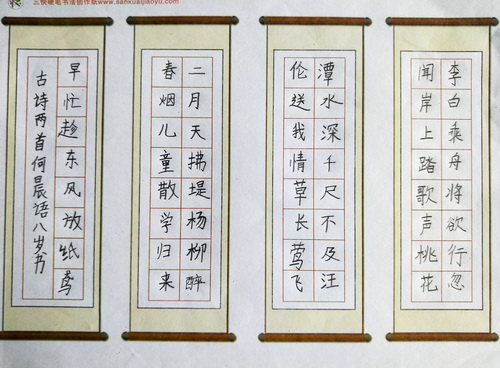 三快硬笔书法创作纸www.sankuaijiaoyu.com
李白乘舟将欲行忽
闻岸上踏歌声桃花
潭水深千尺不及汪
伦送我情草长莺飞
二月天拂堤杨柳醉
春烟儿童散学归来
早忙趁东风放纸鸢
古诗两首何晨语八岁书